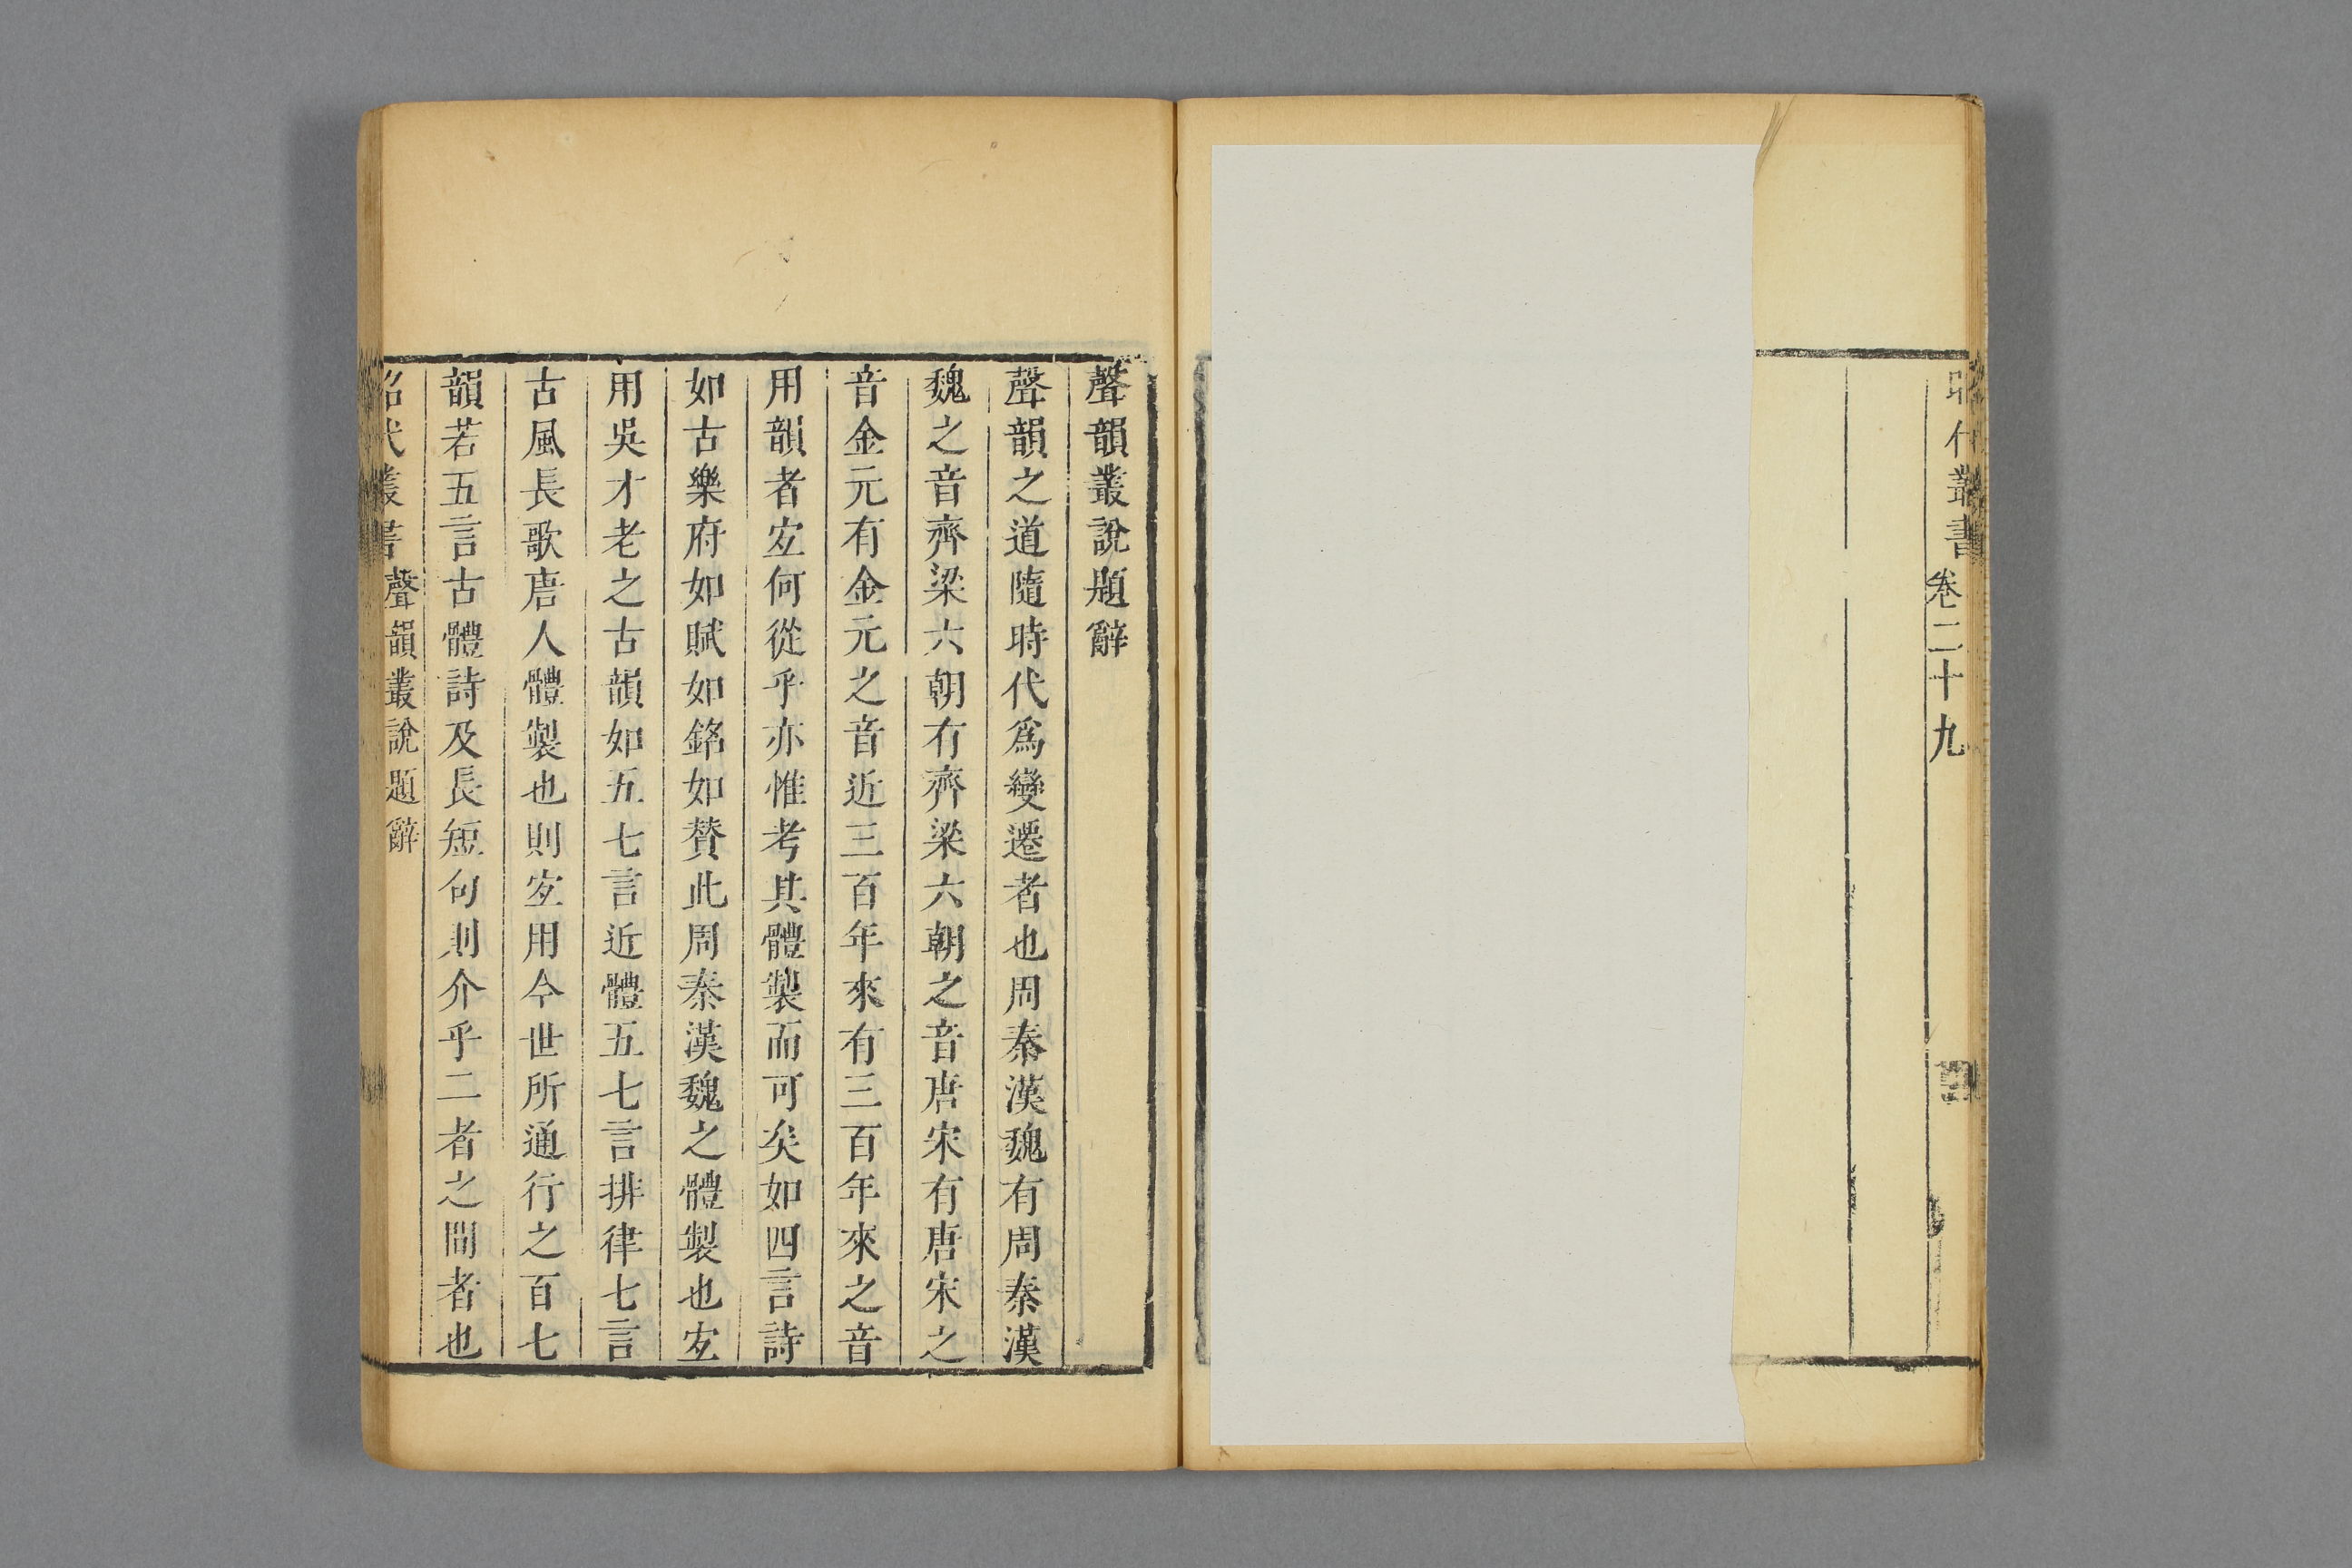 昭代叢書 卷二十九
聲韻叢說題辭
聲韻之道隨時代爲變遷者也周秦漢魏有周秦漢
魏之音齊梁六朝有齊梁六朝之音唐宋有唐宋之
音金元有金元之音近三百年來有三百年來之音
用韻者宐何從乎亦惟考其體製而可矣如四言詩
如古樂府如賦如銘如賛此周秦漢魏之體製也宐
用吳才老之古韻如五七言近體五七言排律七言
古風長歌唐人體製也則宐用今世所通行之百七
韻若五言古體詩及長短句則介乎二者之間者也
昭代叢書 聲韻叢說題辭